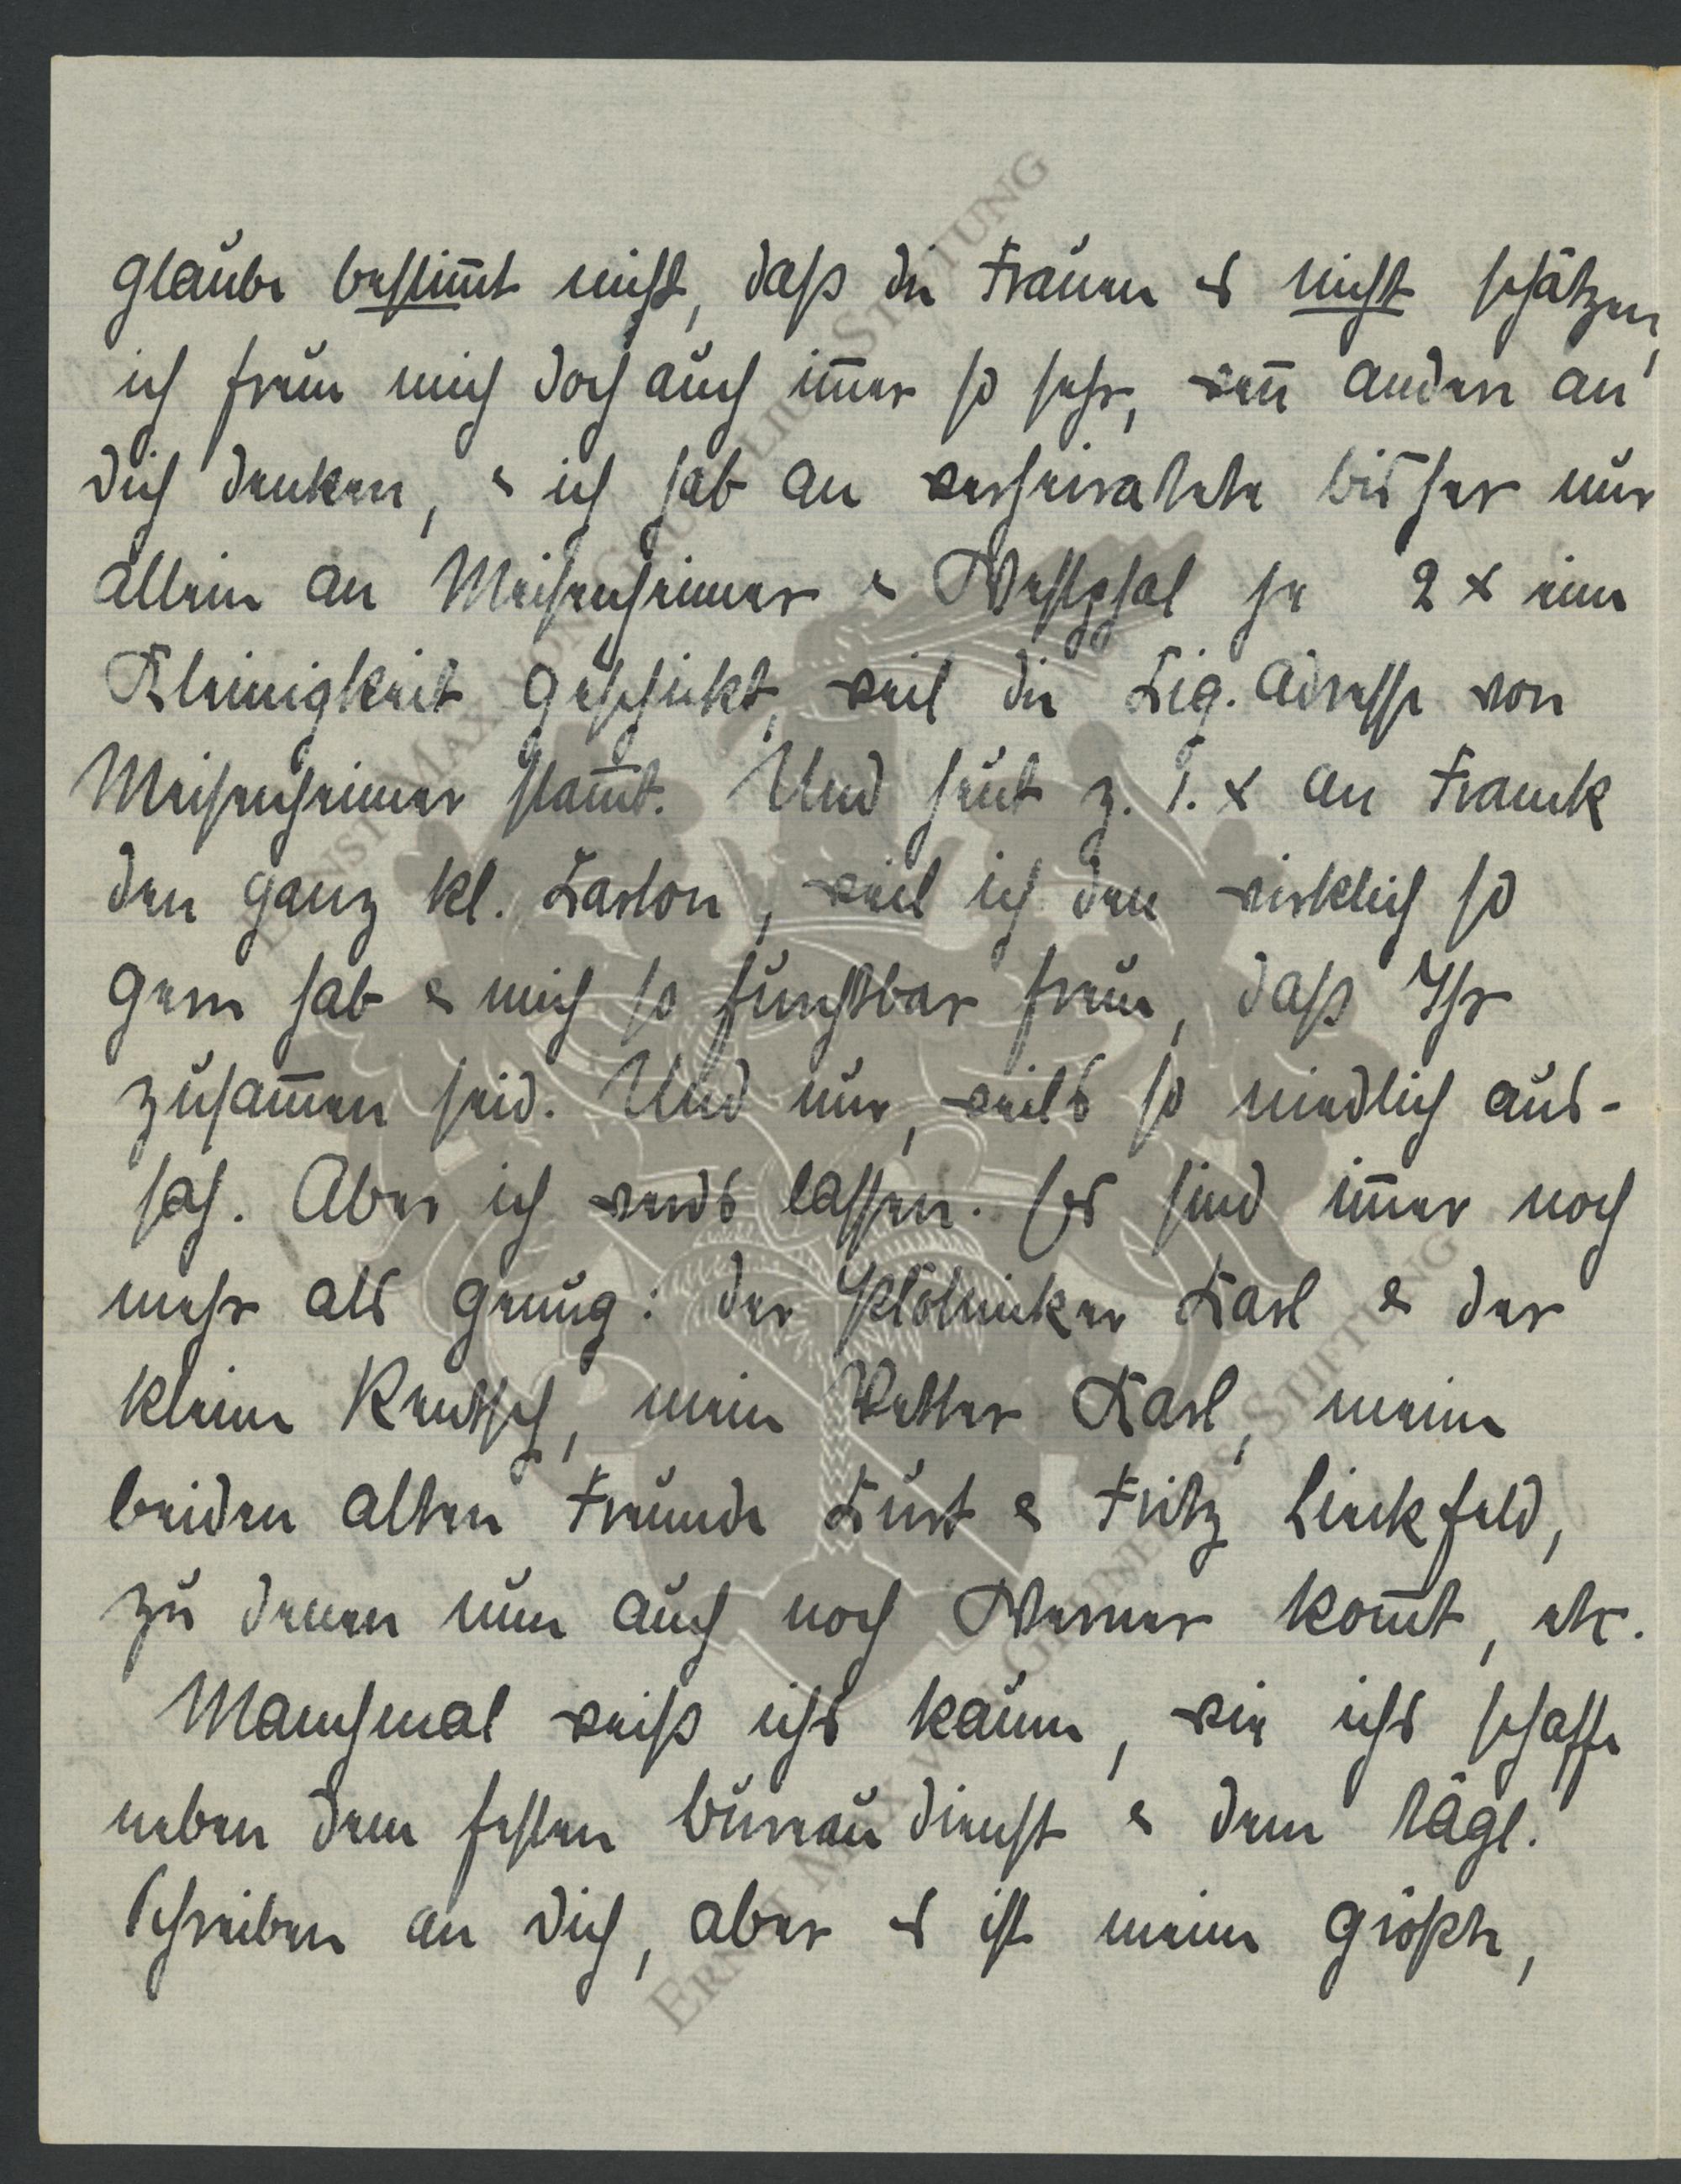 glaube bestim̄t nicht, daß die Frauen es nicht schätzen,
ich freue mich doch auch im̄er so sehr, wen̄ andere an
dich denken, & ich hab an verheiratete bisher nur
allein an Meisenheimer & Westphal je 2 x eine
Kleinigkeit geschickt, weil die Zig. Adresse von
Meisenheimer stam̄t. Und heut z. 1. x an Franck
den ganz kl. Karton, weil ich den wirklich so
gern hab & mich so furchtbar freue, daß Ihr
zusam̄en seid. Und nur, weils so niedlich aus-
sah. Aber ich werds lassen. Es sind im̄er noch
mehr als genug: der Karl & der
kleine Rentsch, mein Vetter Karl, meine
beiden alten Freunde Kurt & Fritz Linckfeld,
zu denen nun auch noch Werner kom̄t, etc.
Manchmal weiß ichs kaum, wie ichs schaffe
neben dem festen Bureaudienst & dem tägl.
Schreiben an dich, aber es ist meine größte,
ERNST MAX VON GRUNELIUS STIFTUNG
ERNST MAX VON GRUNELIUS STIFTUNG